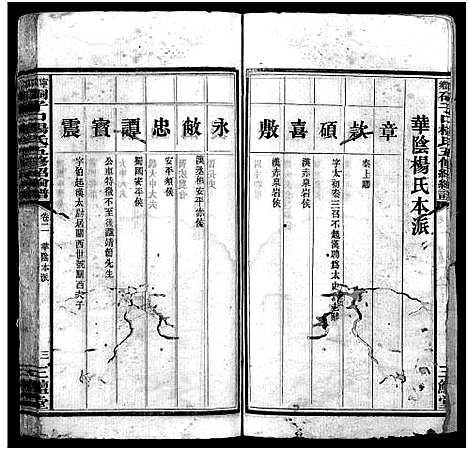 華陰楊氏本派
章
款
秦上卿
碩
字太初秦三召不起漢聘爲太史
喜
漢赤泉嚴侯
敷
漢赤泉嚴侯
永
敞
漢丞相安平敬侯
忠
安平頃侯
譚
蜀國安平侯
寶
公車特徵不至後諡靖節先生
震
字伯起漢太尉居關西世號關西夫子
卷二
華陰本派
三
三鱣堂